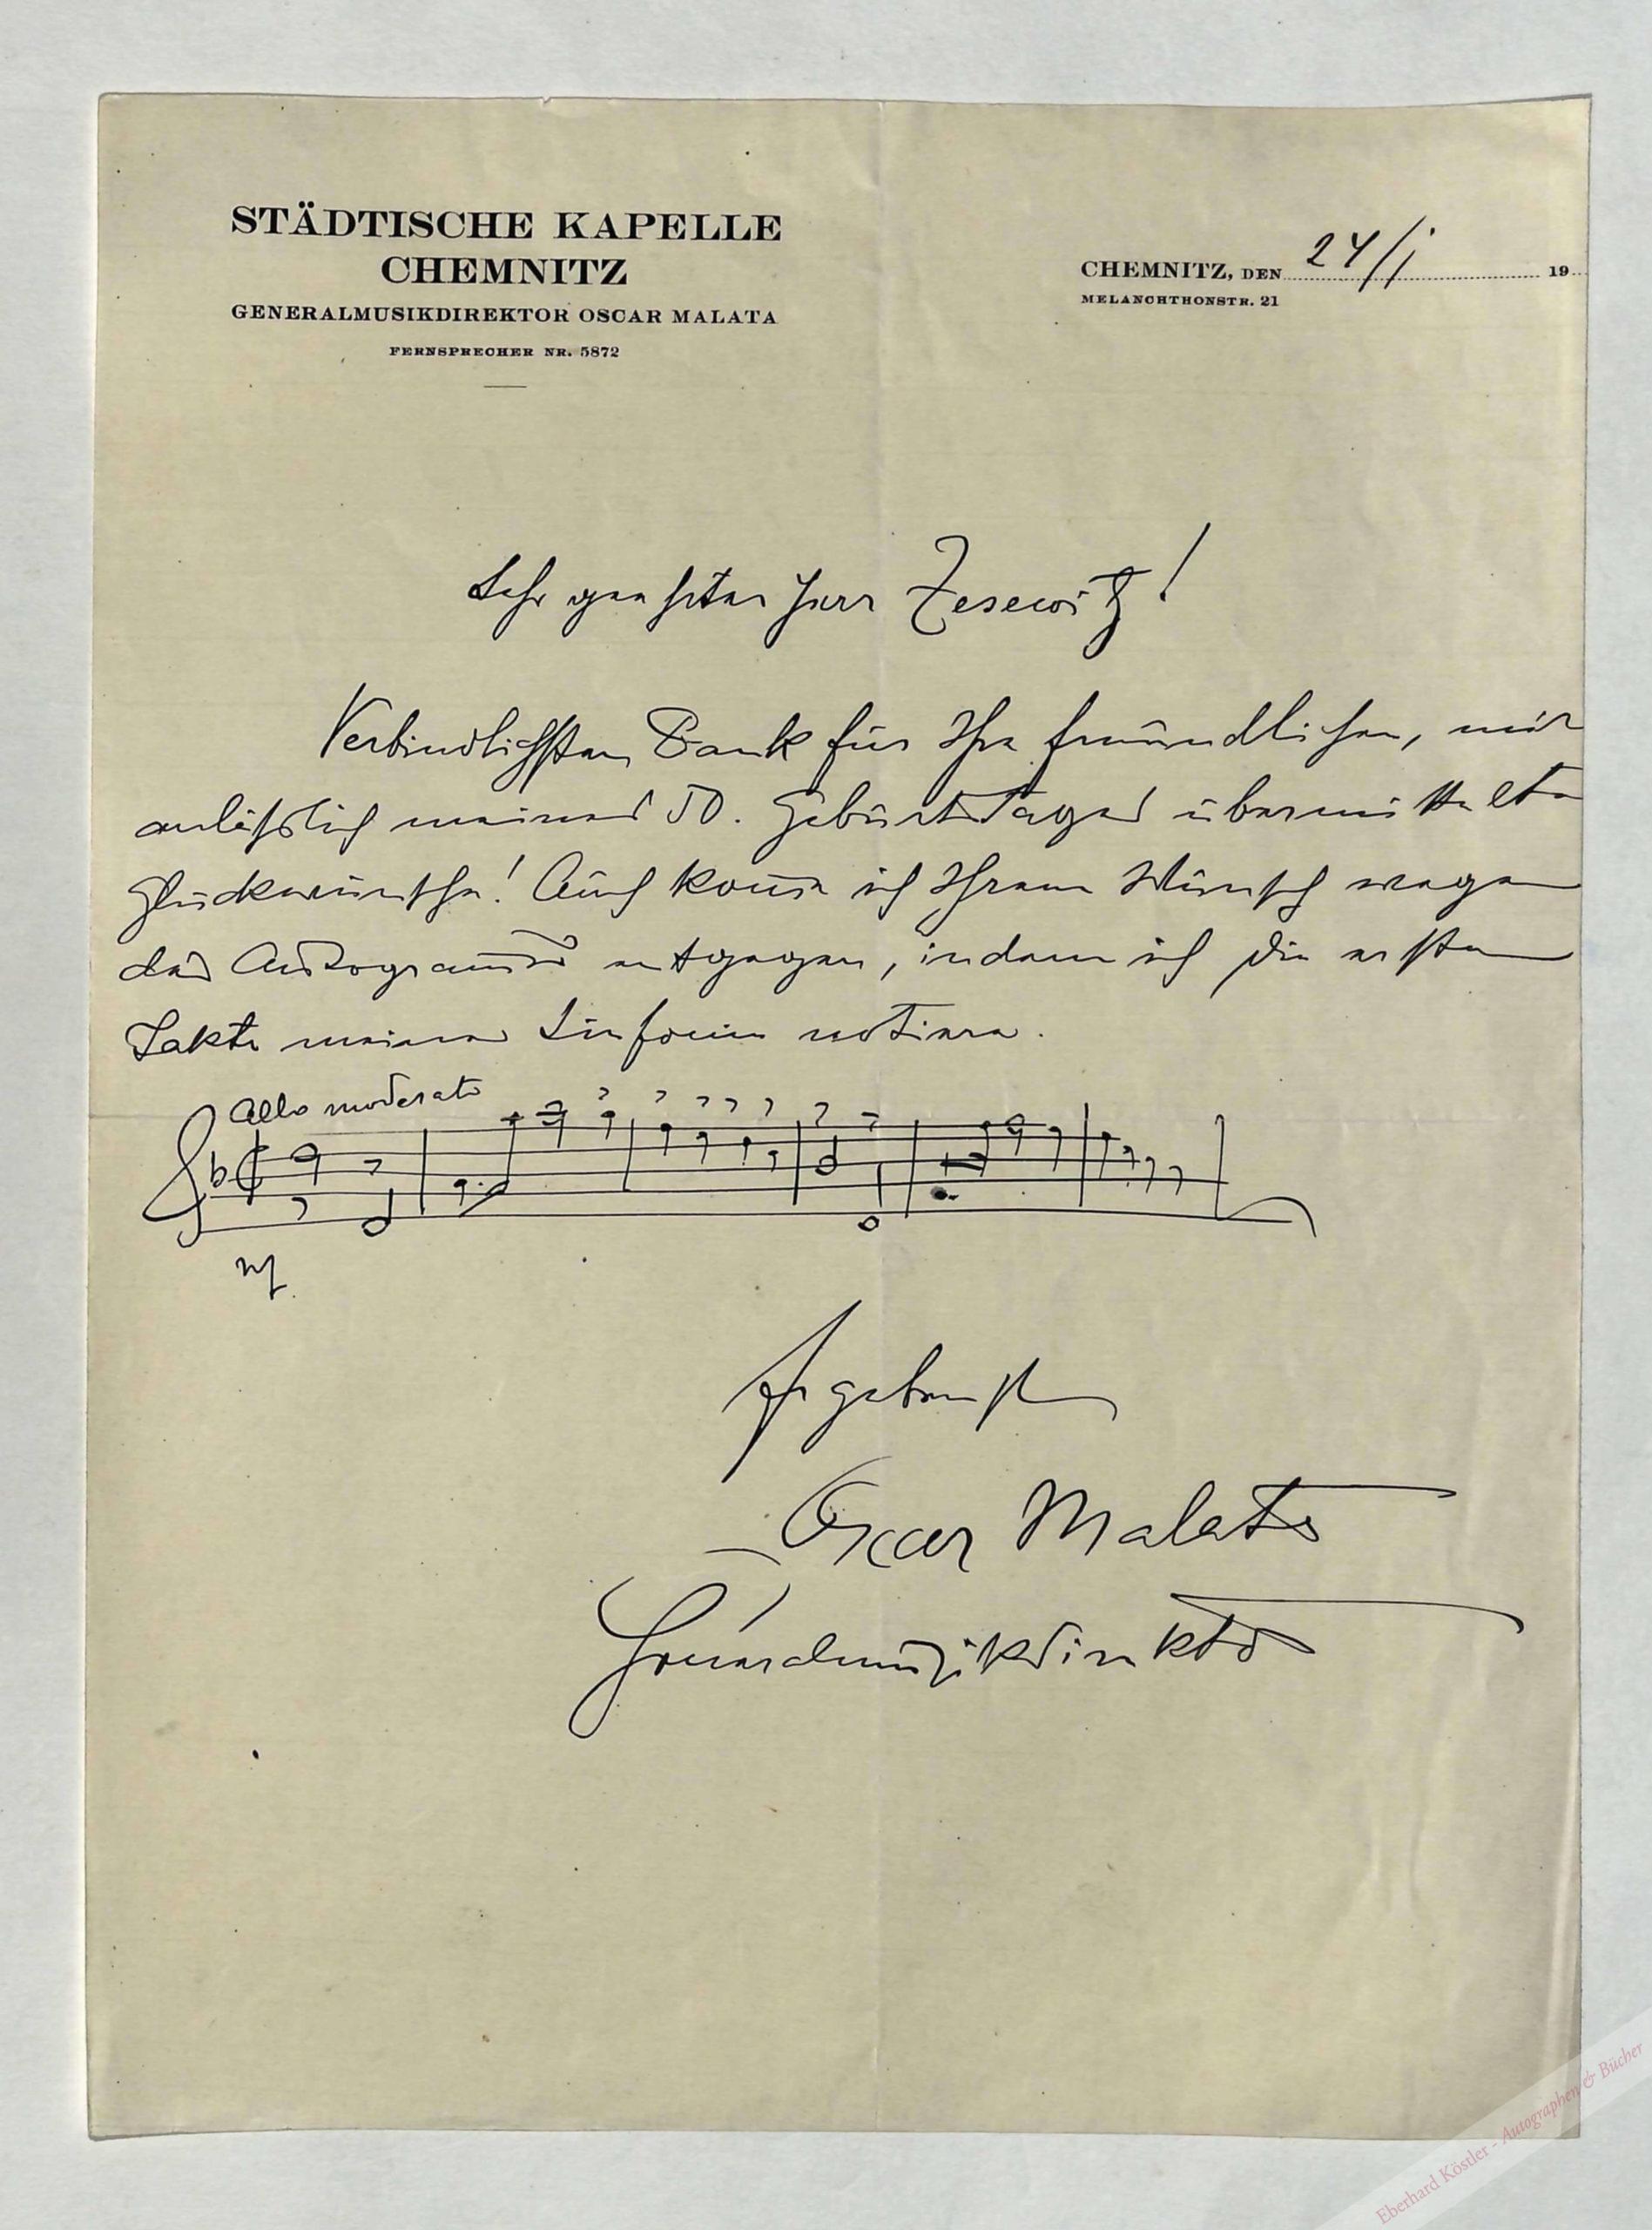 STÄDTISCHE KAPELLE
CHEMNITZ
GENERALMUSIKDIREKTOR OSCAR MALATA
FERNSPRECHER NR. 5872
CHEMNITZ, DEN 24/I 19
MELANCHTHONSTR. 21
Sehr geehrter Herr Zesewitz!
Verbindlichsten Dank für Ihre freundlichen, mir
anläßlich meines 50. Geburtstages übermittelte
Glückwünsche! Auch kom̄e ich Ihrem Wunsch wegen
des Autogram̄s entgegen, indem ich die ersten
Takte meiner Sinfonie notiere.
Allo moderato
mf
Ergebenst
Oscar Malata
Generalmusikdirektor
Eberhard Köstler - Autographen & Bücher